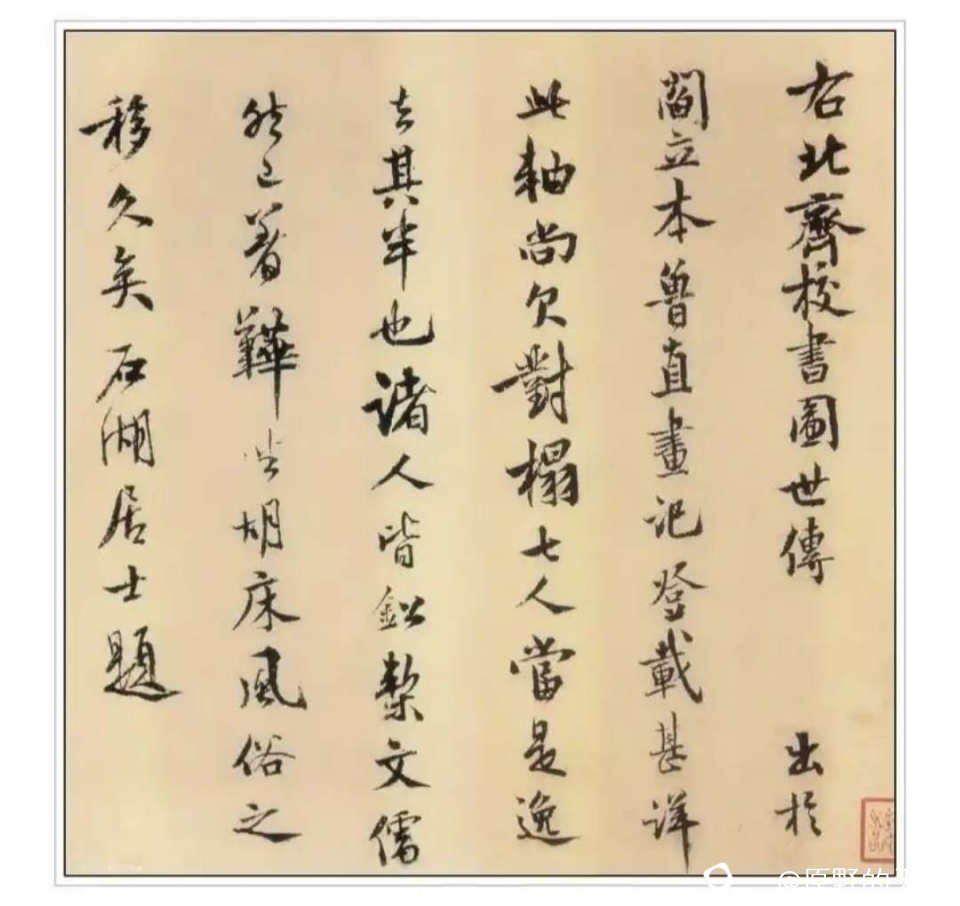 右北齊校書圖世傳出於
閻立本魯直畫記登載甚詳
此軸尚欠對榻七人當是逸
去其半也諸人皆鉛槧文儒
然已著鞾坐胡床風俗之
移久矣石湖居士題
@原野的